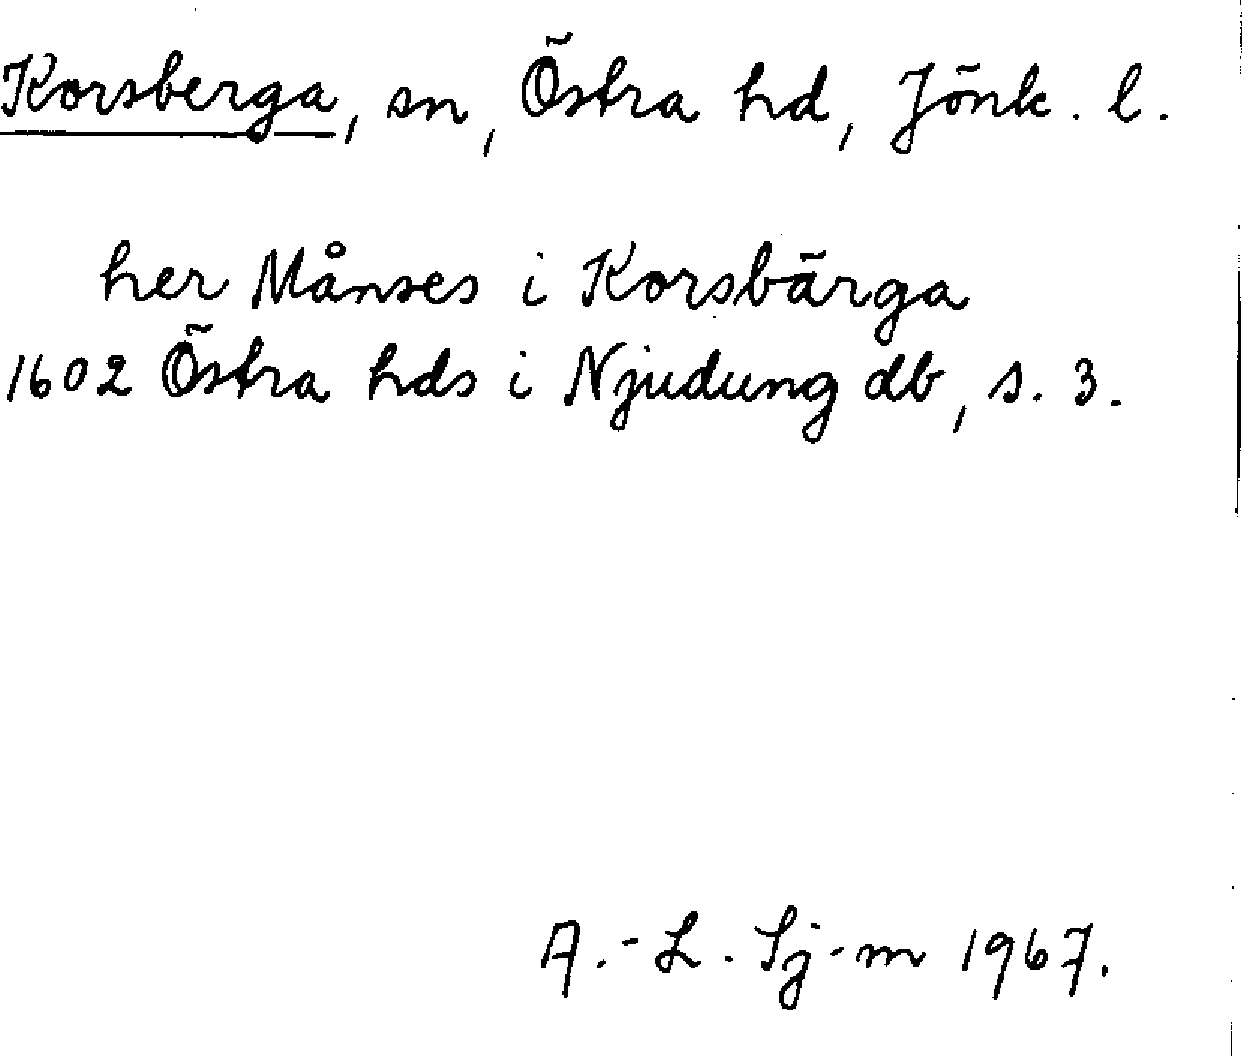 Korsberga, sn, Östra hd, Jönk. l.
her Månses i Korsbärga
1602 Östra hds i Njudung db, s. 3.
A.-L. Sj-m 1967.